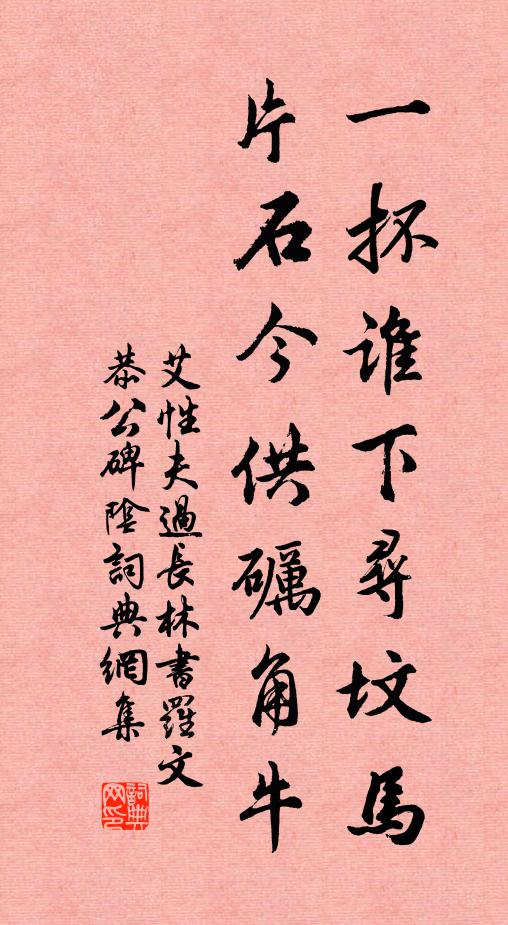 一抔誰下尋坟馬
片石今供礪角牛
艾性夫過長林書羅文
恭公碑陰詞典網集
詞典网印